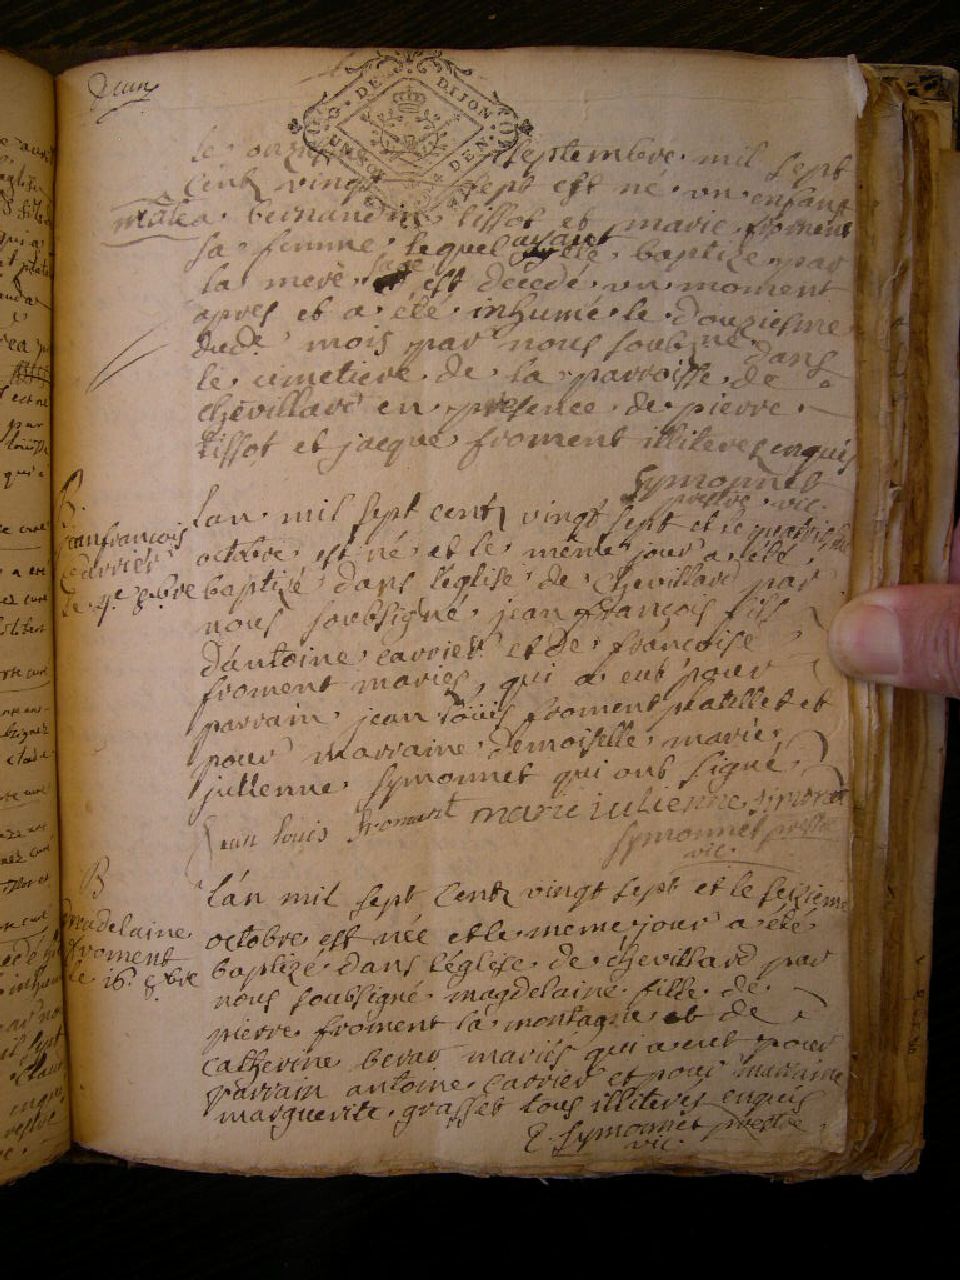 DE DIJON
UN DEN
le onzie septembre mil sept
cent vingt sept est né un enfant
mâle a bernardin tissot et marie froment
sa femme lequel ayant été baptize par
la mere sage est decedé un moment
apres et a été inhumé le douziesme
dud.e mois par nous soubsigné dans
le cimetiere de la parroisse de
chevillard en presence de pierre
tissot et jacque froment illiteres enquis
Symonnet
prestre vic.
B
jean francois
Carrier
le 4e 8bre
lan mil sept cent vingt sept et le quatrie
octobre est né et le même jour a été
baptizé dans l'eglise de Chevillard par
nous soubsigné jean françois fils
d'antoine carrier et de françoise
froment mariés qui a eut pour
parrain jean loüis froment platellet et
pour marraine demoiselle marie
julienne Symonnet qui ont signé
jean louis froment marie iulienne simonet
Symonnet prestre
vic.
B
magdelaine
froment
le 16 8bre
l'an mil sept cent vingt sept et le sezieme
octobre est née et le meme jour a été
baptizé dans l'eglise de chevillard par
nous soubsigné magdelaine fille de
pierre froment la montagne et de
catherine berar mariés qui a eut pour
parrain antoine carrier et pour marraine
marguerite grasset tous illiterés enquis
Symonnet prestre
vic.